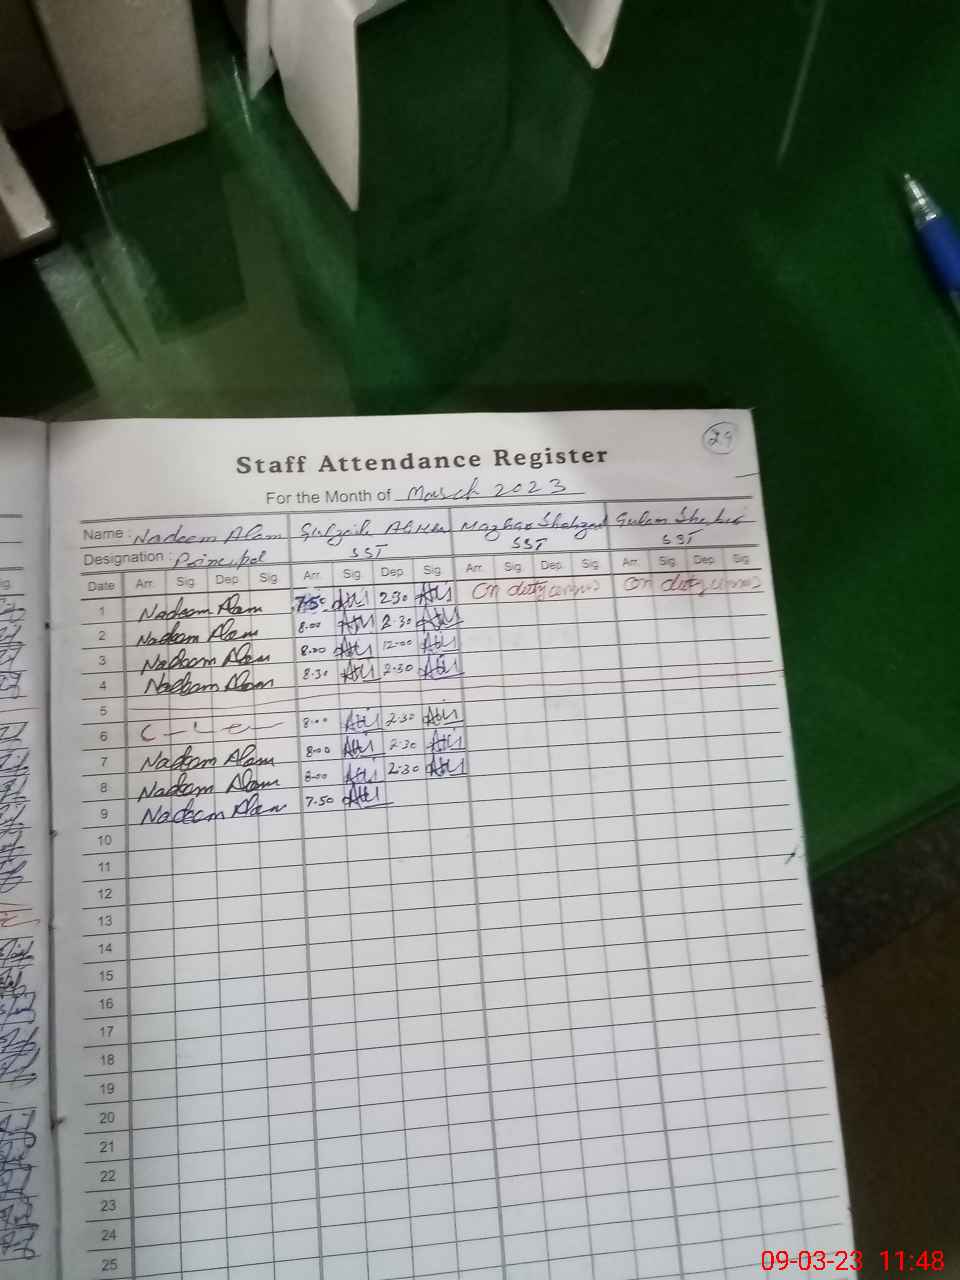 29
Staff Attendance Register
For the Month of March 2023
Name : Nadeem Alam Mazhar Shahzad Gulam Shabir
Designation : Principal SST SST SST
Date Arr. Sig. Dep. Sig. Arr. Sig. Dep. Sig. Arr. Sig. Dep. Sig. Arr. Sig. Dep. Sig.
1 Nadeem Alam 7.50 2.30 on duty census on duty census
2 Nadeem Alam 8.00 2.30
3 Nadeem Alam 8.00 12.00
4 Nadeem Alam 8.30 2.30
5
6 8.00 2.30
7 Nadeem Alam 8.00 2.30
8 Nadeem Alam 8.00 2.30
9 Nadeem Alam 7.50
10
11
12
13
14
15
16
17
18
19
20
21
22
23
24
25
09-03-23 11:48